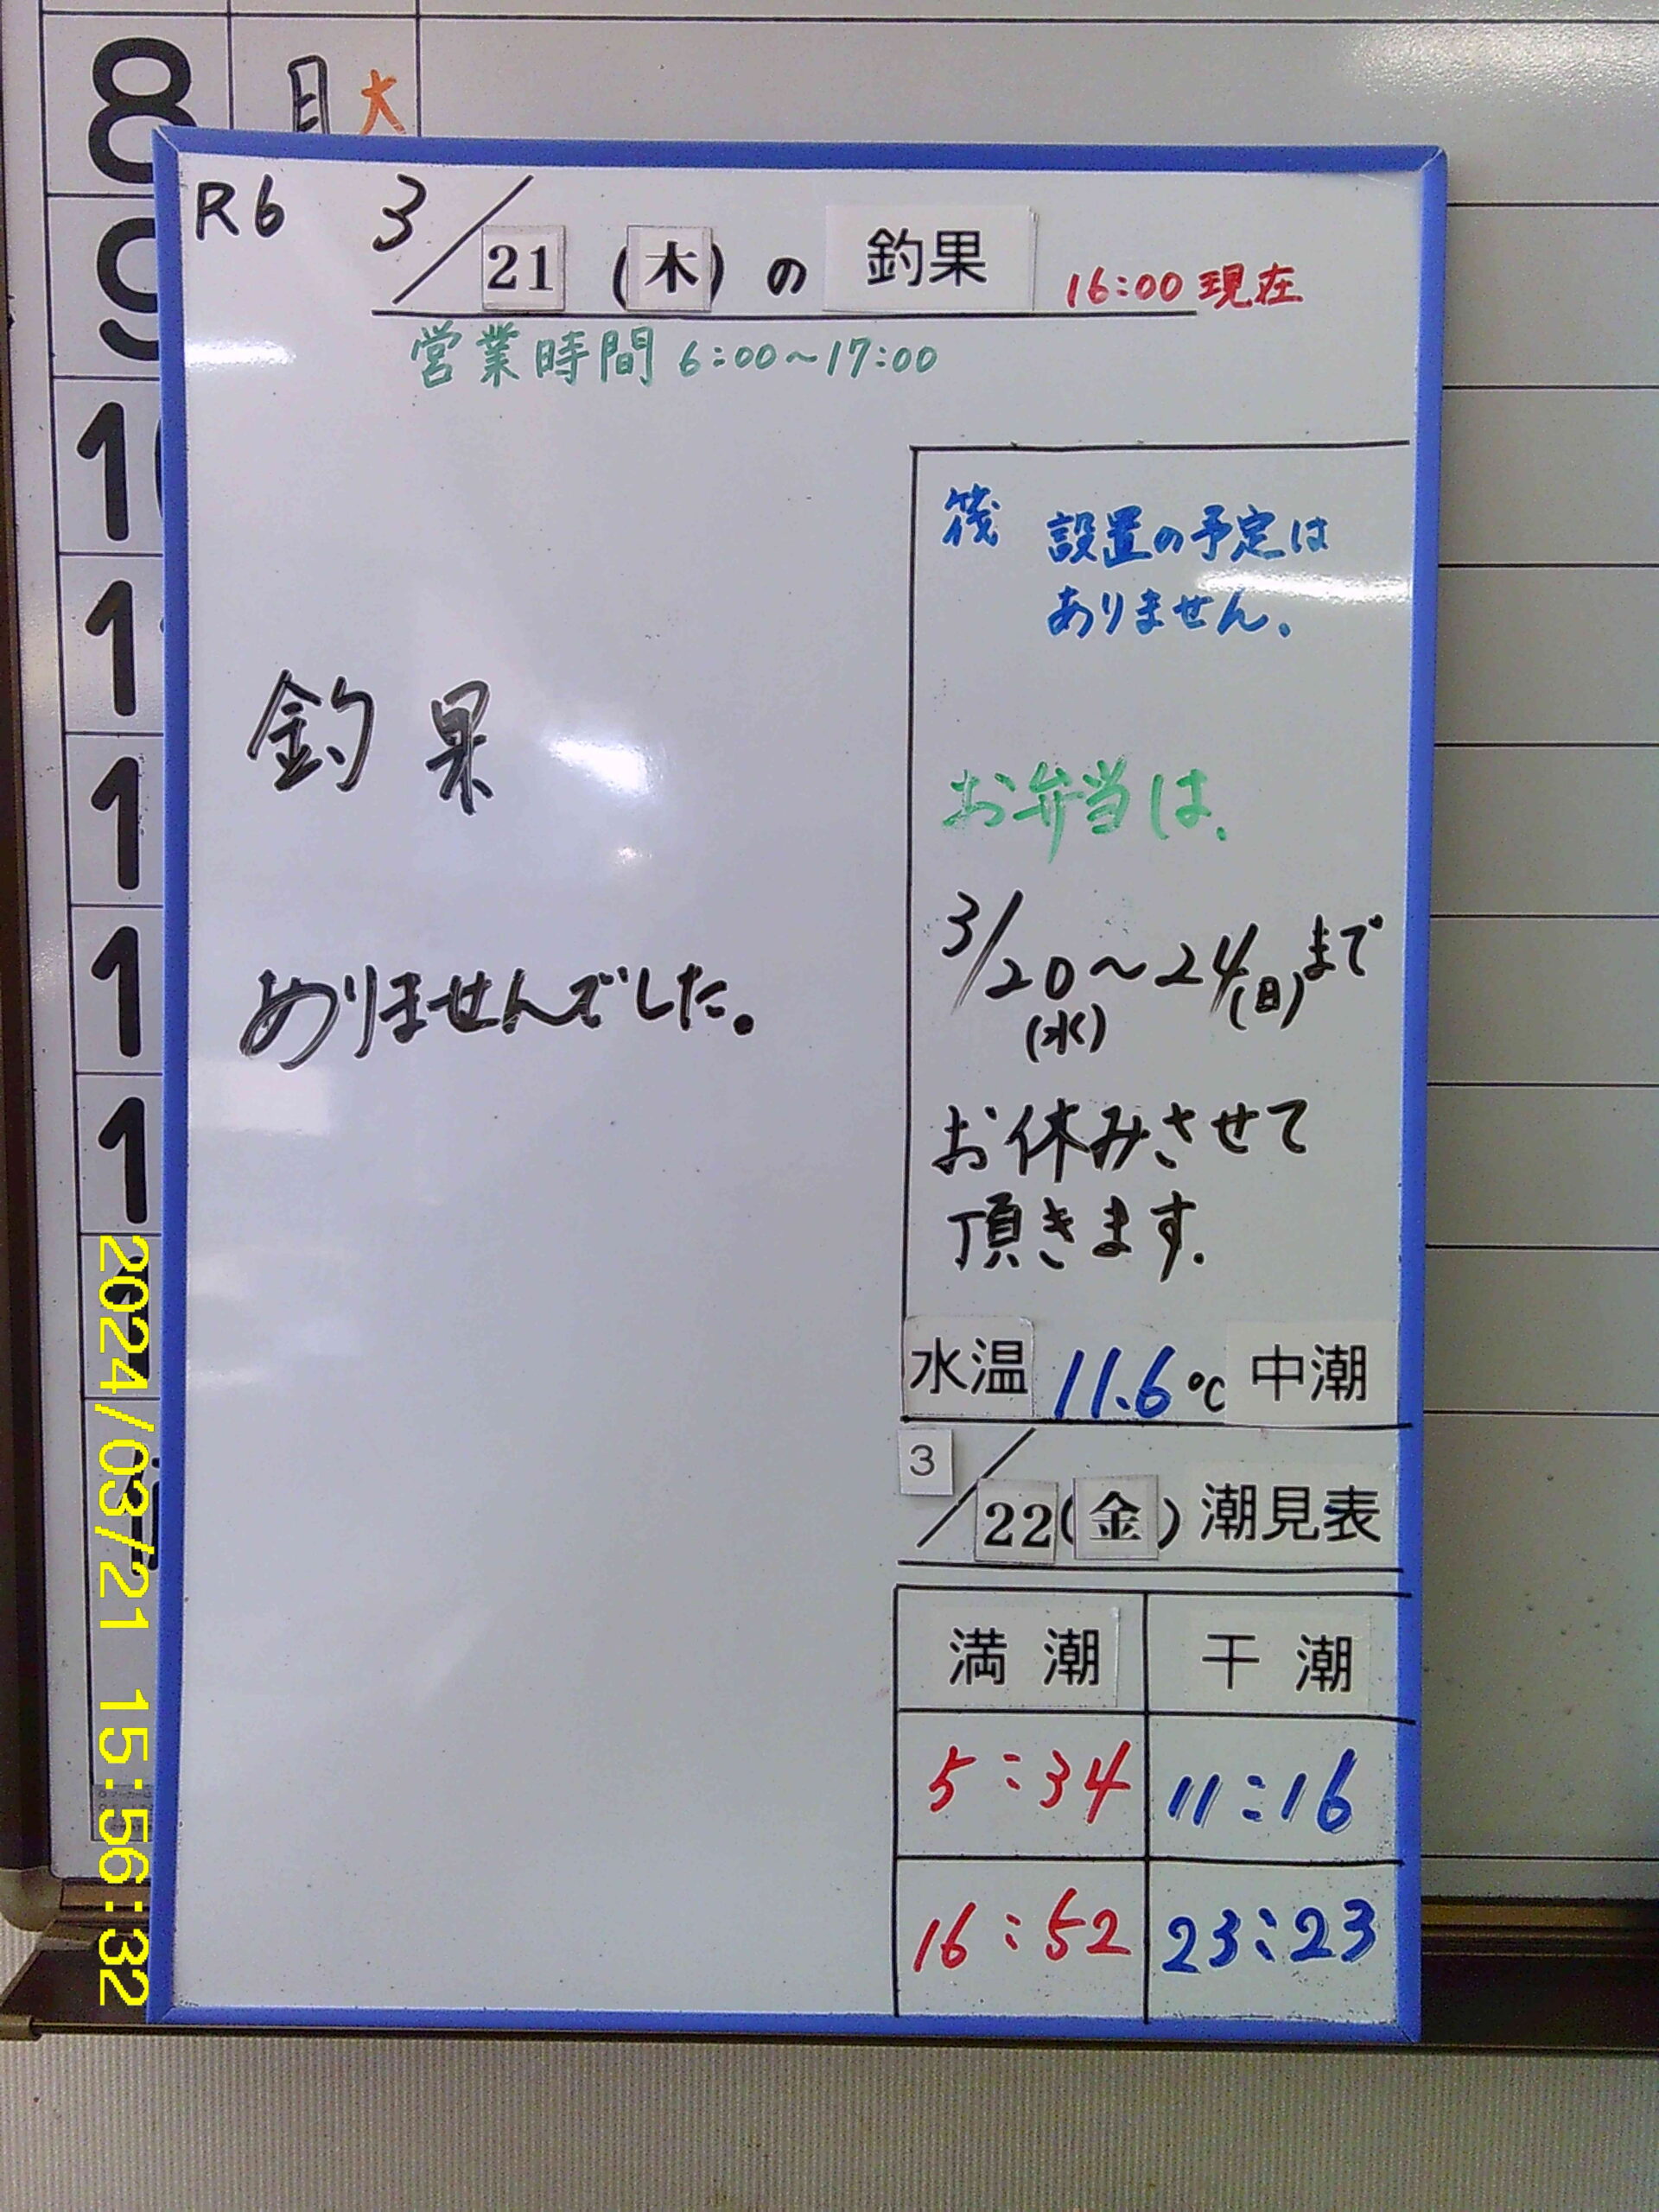 8 月 大
9
R6 3/21 (木) の 釣果 16:00 現在
営業時間 6:00～17:00
釣果
ありませんでした。
筏 設置の予定は
ありません。
お弁当は、
3/20～24(日)まで
(水)
お休みさせて
頂きます.
水温 11.6 ℃ 中潮
3/22(金) 潮見表
満潮 干潮
5:34 11:16
16:52 23:23
1
1
1
1
1
2024/03/21 15:56:32